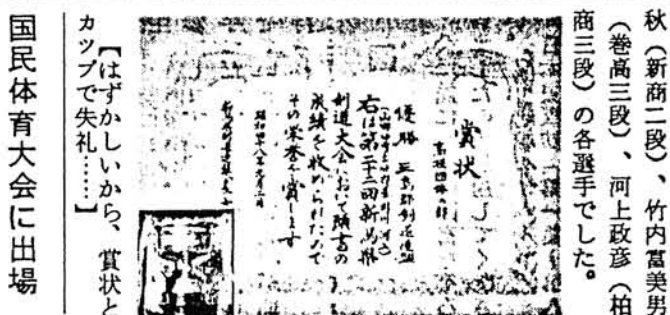 秋（新商二段）、竹内富美男
（巻高三段）、河上政彦（柏
商三段）の各選手でした。
賞状
高校団体の部
優勝 三島郡剣道連盟
右は第二十二回新潟県
剣道大会において頭書の
成績を収められたので
その栄誉を賞します
【はずかしいから、賞状と
カップで失礼……】
国民体育大会に出場